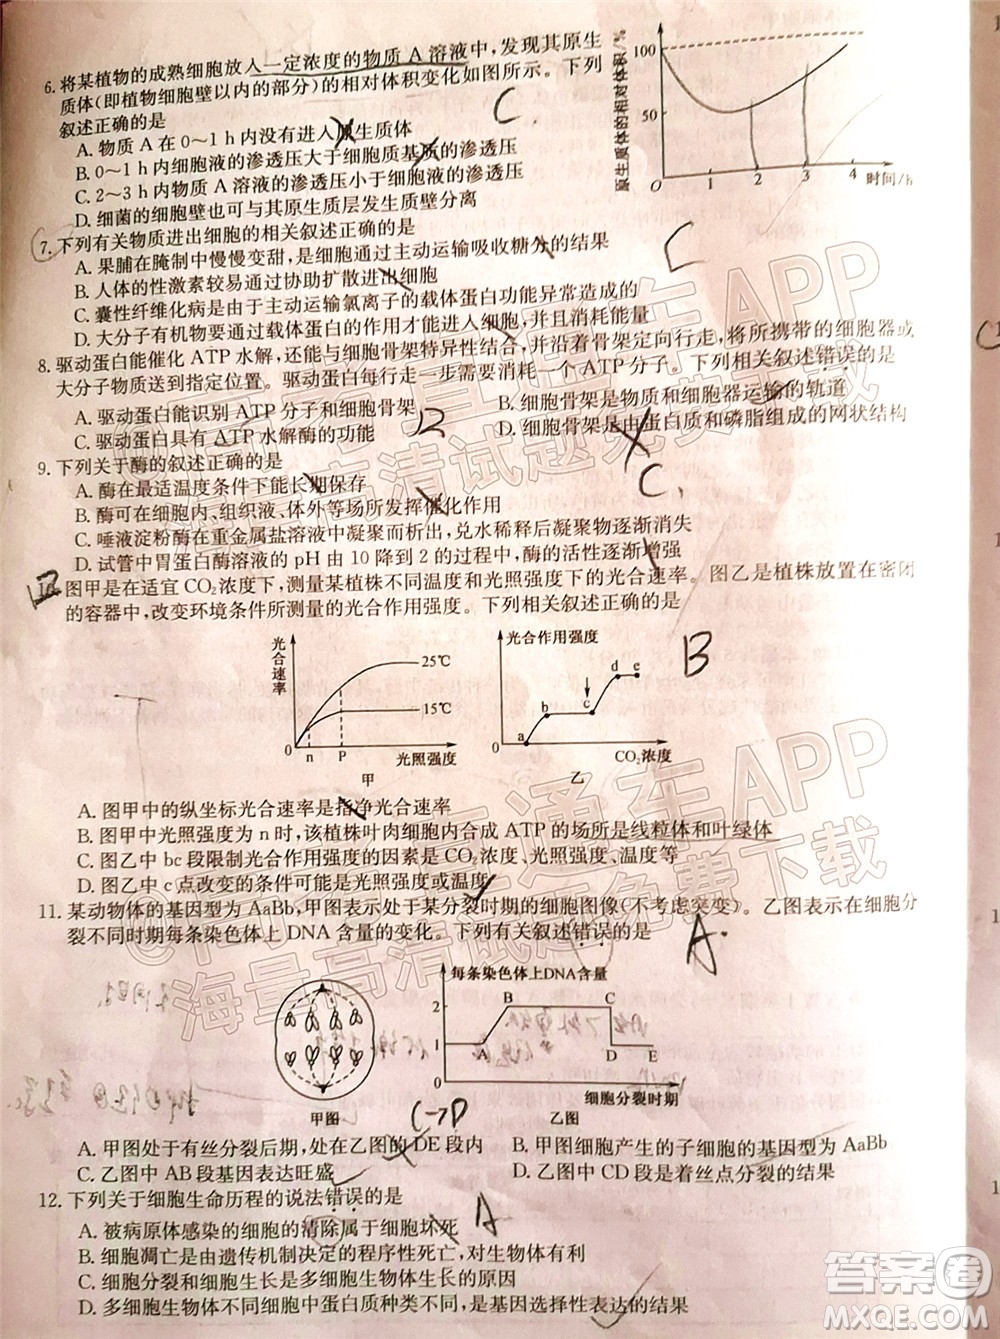 6. 将某植物的成熟细胞放入一定浓度的物质 A 溶液中，发现其原生
质体(即植物细胞壁以内的部分)的相对体积变化如图所示。下列
叙述正确的是
C.
A. 物质 A 在 0～1 h 内没有进入原生质体
B. 0～1 h 内细胞液的渗透压大于细胞质基质的渗透压
C. 2～3 h 内物质 A 溶液的渗透压小于细胞液的渗透压
D. 细菌的细胞壁也可与其原生质层发生质壁分离
原生质体的相对体积/%
100
50
0 1 2 3 4 时间/h
7. 下列有关物质进出细胞的叙述正确的是
C
A. 果脯在腌制中慢慢变甜，是细胞通过主动运输吸收糖分的结果
B. 人体的性激素较易通过协助扩散进出细胞
C. 囊性纤维化病是由于主动运输氯离子的载体蛋白功能异常造成的
D. 大分子有机物要通过载体蛋白的作用才能进入细胞，并且要消耗能量
8. 驱动蛋白能催化 ATP 水解，还能与细胞骨架特异性结合，并沿着骨架定向行走，将所携带的细胞器或
大分子物质送到指定位置。驱动蛋白每行走一步需要消耗一个 ATP 分子。下列相关叙述错误的是
A. 驱动蛋白能识别 ATP 分子和细胞骨架
B. 细胞骨架是物质和细胞器运输的轨道
C. 驱动蛋白具有 ATP 水解酶的功能
D. 细胞骨架是由蛋白质和磷脂组成的网状结构
9. 下列关于酶的叙述正确的是
C.
A. 酶在最适温度条件下能长期保存
B. 酶可在细胞内、组织液、体外等场所发挥催化作用
C. 唾液淀粉酶在重金属盐溶液中凝聚而析出，兑水稀释后凝聚物逐渐消失
D. 试管中胃蛋白酶溶液的 pH 由 10 降到 2 的过程中，酶的活性逐渐增强
图甲是在适宜 CO₂浓度下，测量某植株不同温度和光照强度下的光合速率。图乙是植株放置在密闭
的容器中，改变环境条件所测量的光合作用强度。下列相关叙述正确的是
B
光合速率
25℃
15℃
0 n P 光照强度
甲
光合作用强度
a b c d e
0 CO₂浓度
乙
A. 图甲中的纵坐标光合速率是指净光合速率
B. 图甲中光照强度为 n 时，该植株叶肉细胞内合成 ATP 的场所是线粒体和叶绿体
C. 图乙中 bc 段限制光合作用强度的因素是 CO₂浓度、光照强度、温度等
D. 图乙中 c 点改变的条件可能是光照强度或温度
11. 某动物体的基因型为 AaBb，甲图表示处于某分裂时期的细胞图像(不考虑突变)。乙图表示在细胞分
裂不同时期每条染色体上 DNA 含量的变化。下列有关叙述错误的是
A.
甲图
每条染色体上DNA含量
2
1
0
A B C D E
细胞分裂时期
乙图
C→D
A. 甲图处于有丝分裂后期，处在乙图的 DE 段内
B. 甲图细胞产生的子细胞的基因型为 AaBb
C. 乙图中 AB 段基因表达旺盛
D. 乙图中 CD 段是着丝点分裂的结果
12. 下列关于细胞生命历程的说法错误的是
A
A. 被病原体感染的细胞的清除属于细胞坏死
B. 细胞凋亡是由遗传机制决定的程序性死亡，对生物体有利
C. 细胞分裂和细胞生长是多细胞生物体生长的基础
D. 多细胞生物体不同细胞中蛋白质种类不完全相同，是基因选择性表达的结果
答案圈
MXQE.COM